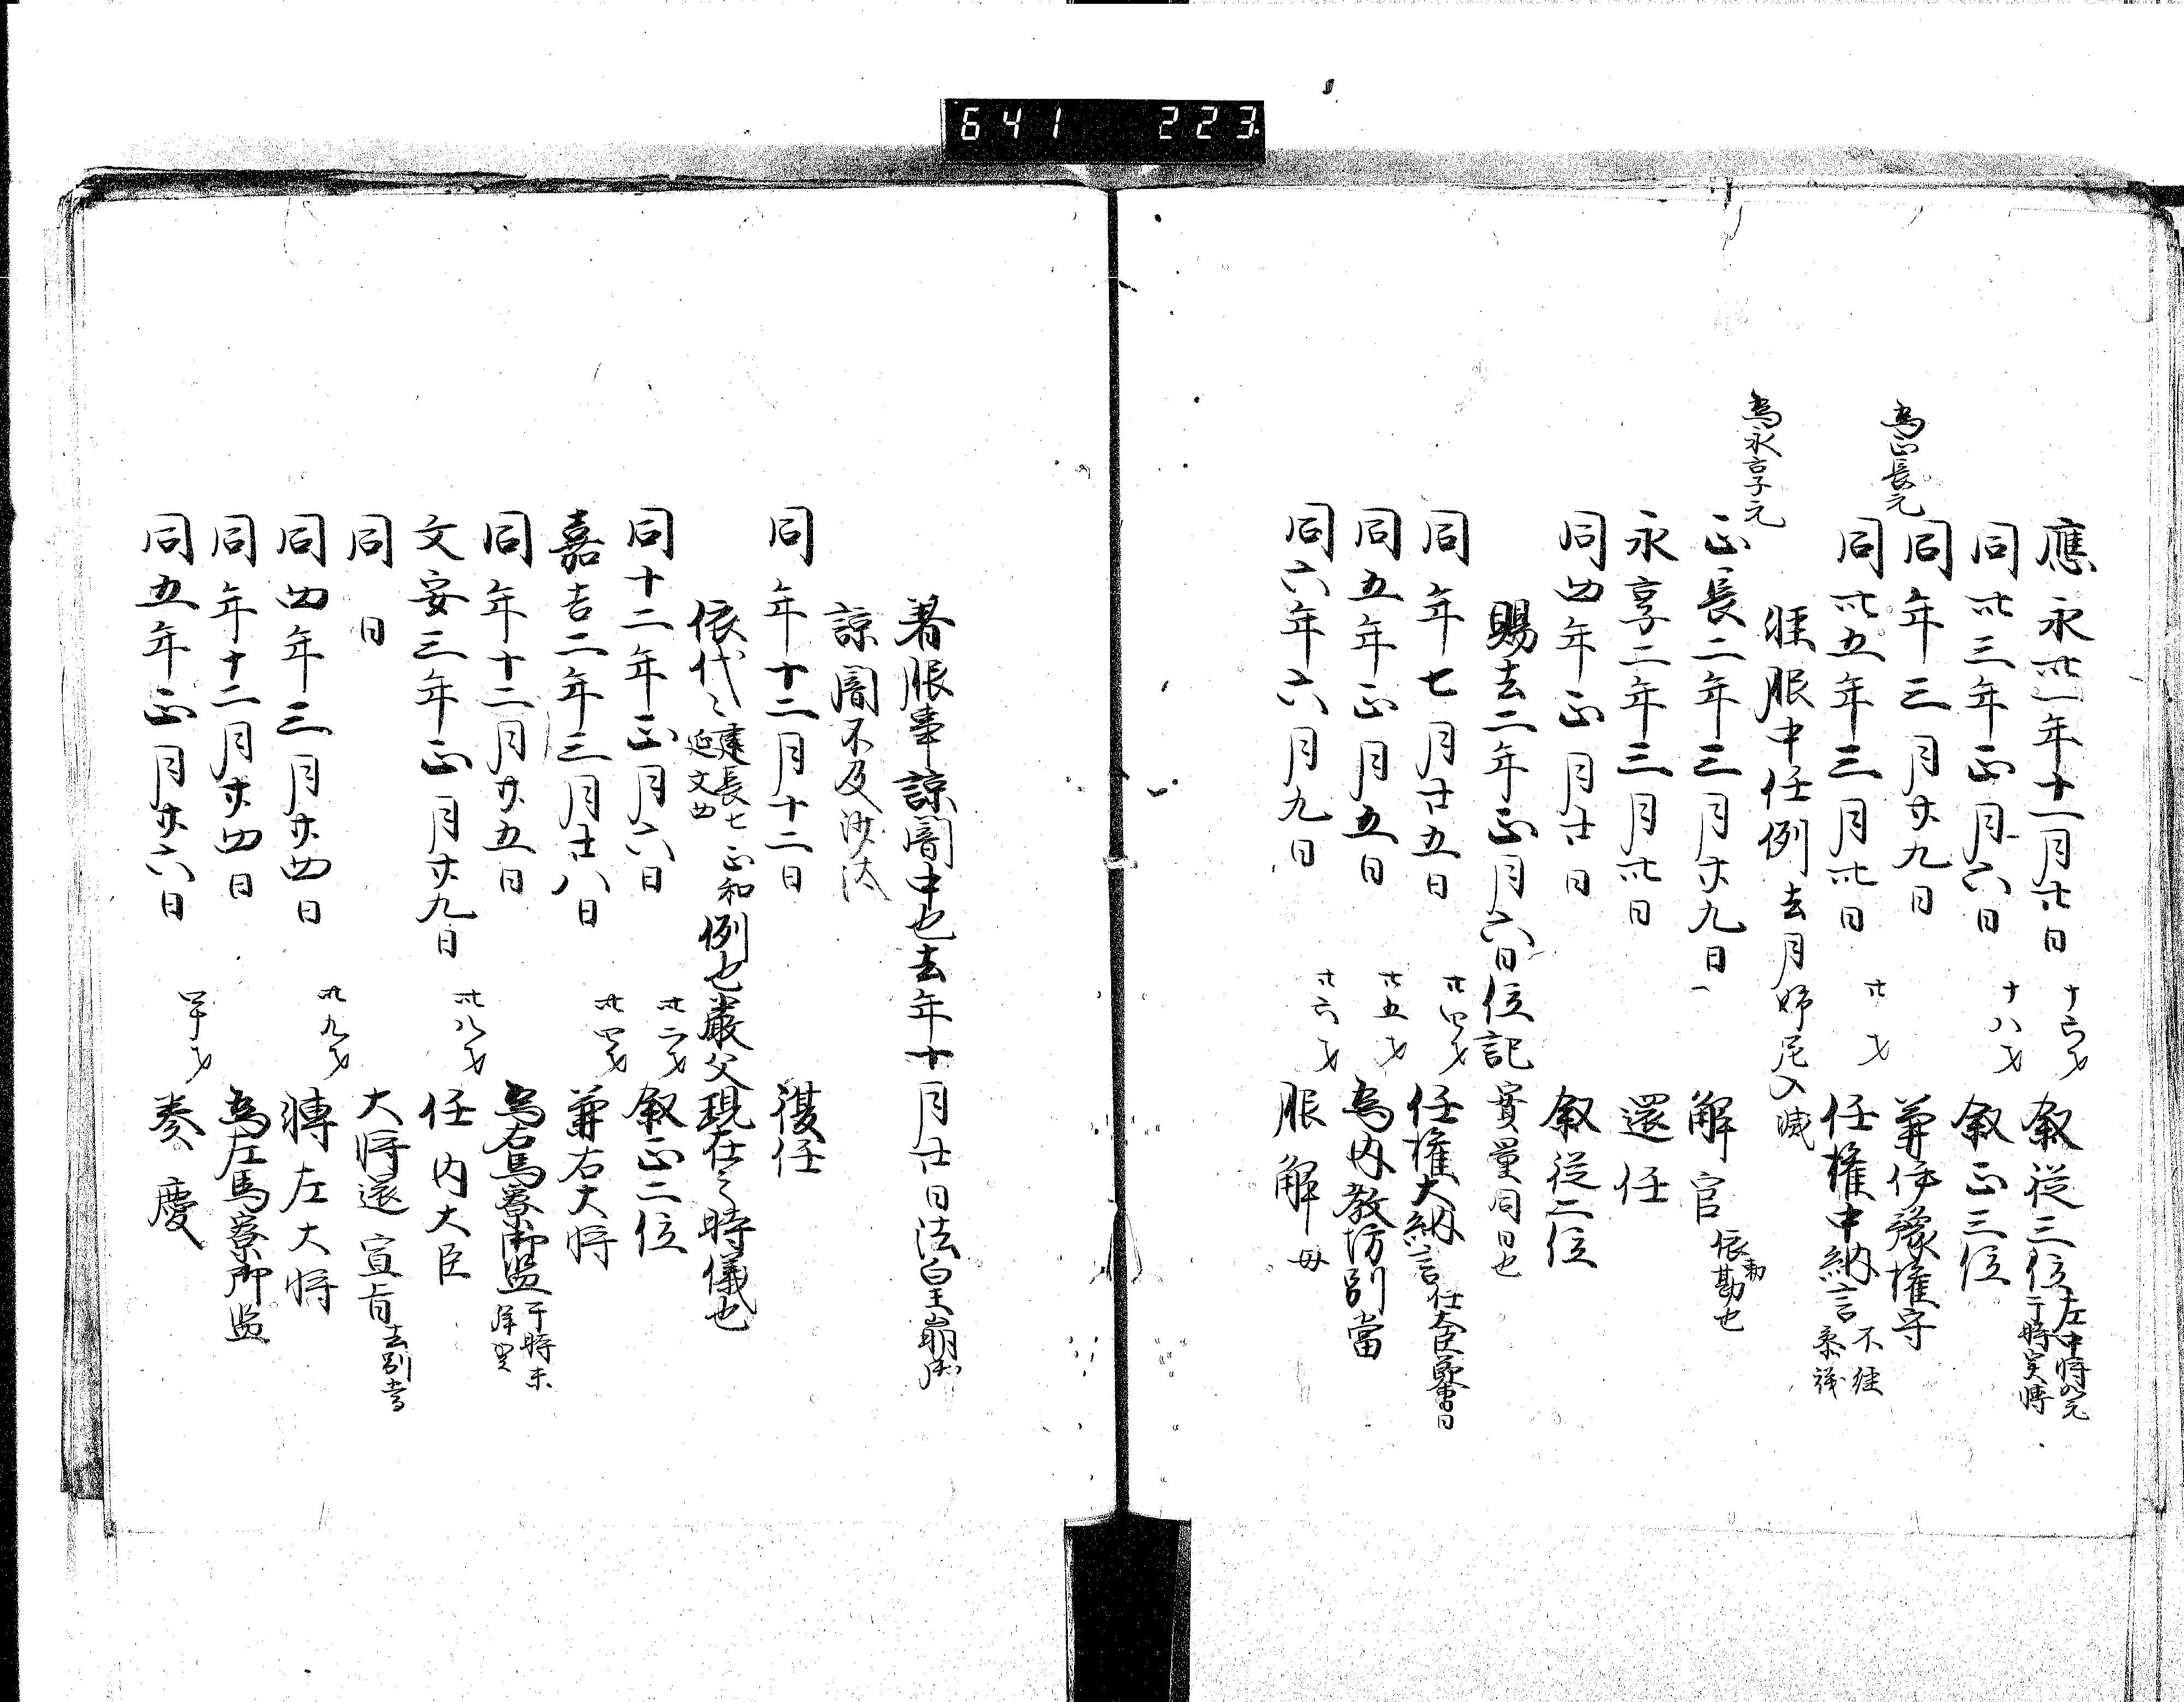 641 223
應永卅一年十一月廿日 十六才 叙従三位 左中将如元 于時実博
同卅三年正月六日 十八才 叙正三位
同年三月廿九日 兼伊豫權守
為正長元
同卅五年三月卅日 廿才 任權中納言 不経参議
軽服中任例去月姉尼入滅
為永享元
正長二年三月廿九日 解官 依勅勘也
永享二年三月卅日 還任
同四年正月廿日 叙従二位
賜去二年正月六日位記 實量同日也
同年七月廿五日 廿四才 任權大納言
同五年正月五日 廿五才 為内教坊別當
同六年六月九日 廿六才 服解 母
着服事諒闇中也去年十月廿日法皇崩御
諒闇不及沙汰
同年十二月十二日 復任
依代々建長七 延文四 正和例也嚴父現在之時儀也
同十二年正月六日 卅二才 叙正二位
嘉吉二年三月廿八日 卅四才 兼右大将
同年十二月廿五日 為右馬寮御監 于時未拝賀
文安三年正月廿九日 卅八才 任内大臣
同日 大将還宣旨
同四年三月廿四日 卅九才 轉左大将
同年十二月廿四日 為左馬寮御監
同五年正月廿六日 四十才 奏慶